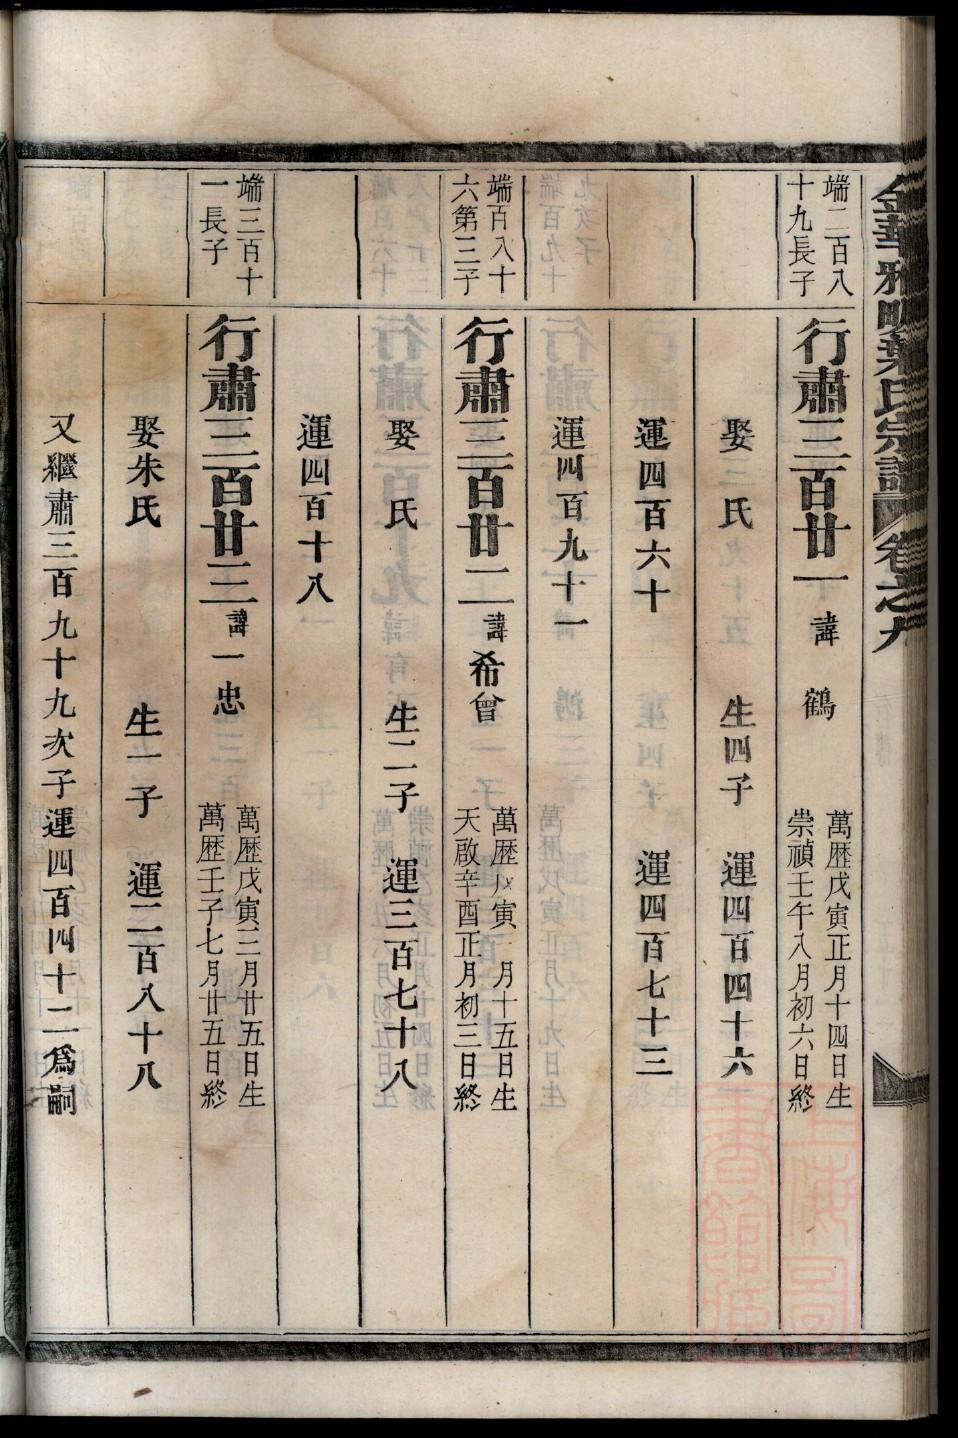 金華雅畈葉氏宗譜 卷之九
端二百八
十九長子
行肅三百廿一 諱 鶴
萬歴戊寅正月十四日生
崇禎壬午八月初六日終
娶 氏 生四子 運四百四十六
運四百六十 運四百七十三
運四百九十一
端百八十
六第三子
行肅三百廿二 諱希曾
萬歴戊寅 月十五日生
天啟辛酉正月初三日終
娶 氏 生二子 運三百七十八
運四百十八
端三百十
一長子
行肅三百廿三 諱一忠
萬歴戊寅三月廿五日生
萬歴壬子七月廿五日終
娶朱氏 生一子 運二百八十八
又繼肅三百九十九次子運四百四十二爲嗣
上海圖書館藏